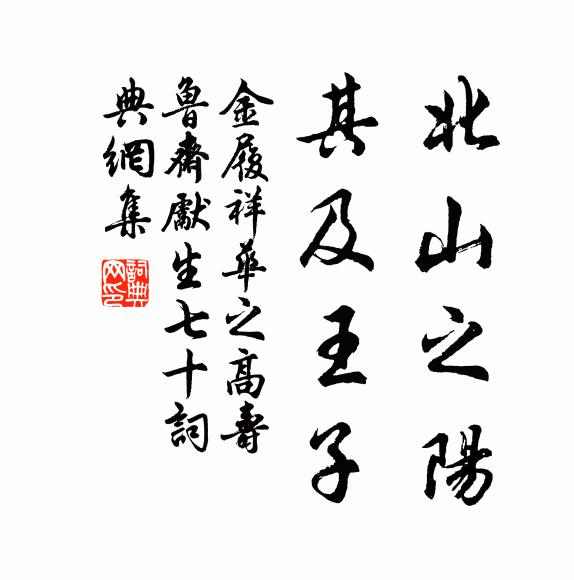 北山之陽
其及王子
金履祥華之高壽
魯齋獻生七十詞
典網集
詞典網印